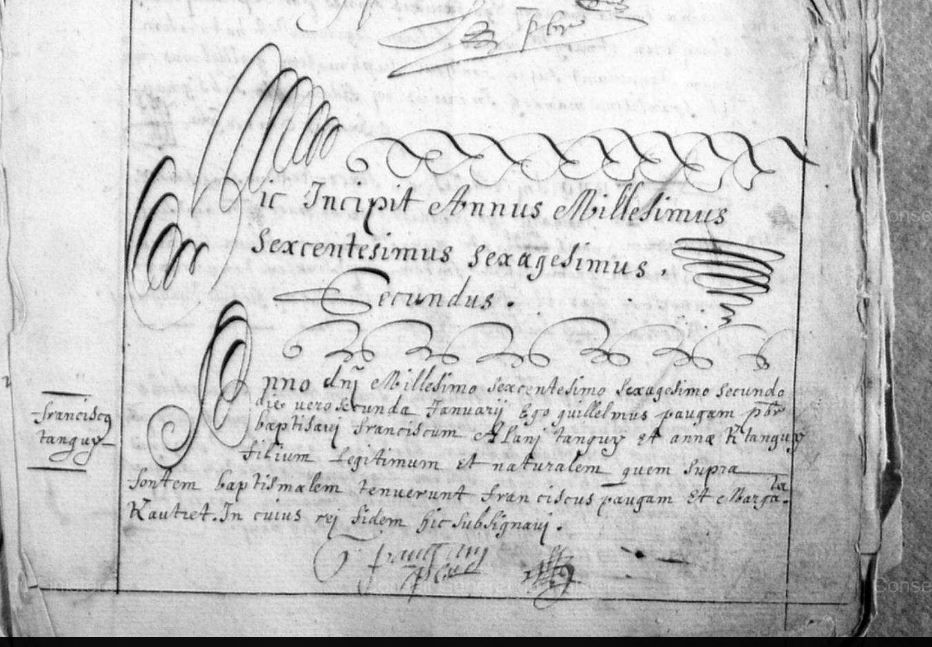 pbr
Hic Incipit Annus Millesimus
sexcentesimus sexagesimus.
Secundus.
Anno dnj Millesimo sexcentesimo sexagesimo secundo
die vero secunda Januarij Ego guillelmus paugam pbr
baptisavj franciscum Alanj tanguy et annæ Ktanguy
filium Legitimum Et naturalem quem supra
fontem baptismalem tenuerunt franciscus paugam Et Marga.ta
Kautret. In cuius rej fidem hic subsignavj.
francisc9
tanguy
paugam
pbr